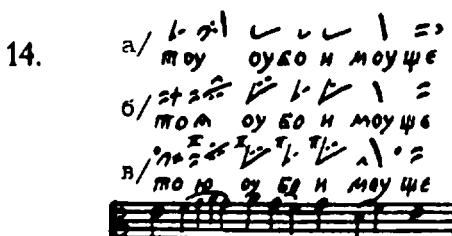 14.
а/ тоу оубо и моуще
б/ том оу бо и моу ще
в/ то ю оу бо и моу ще